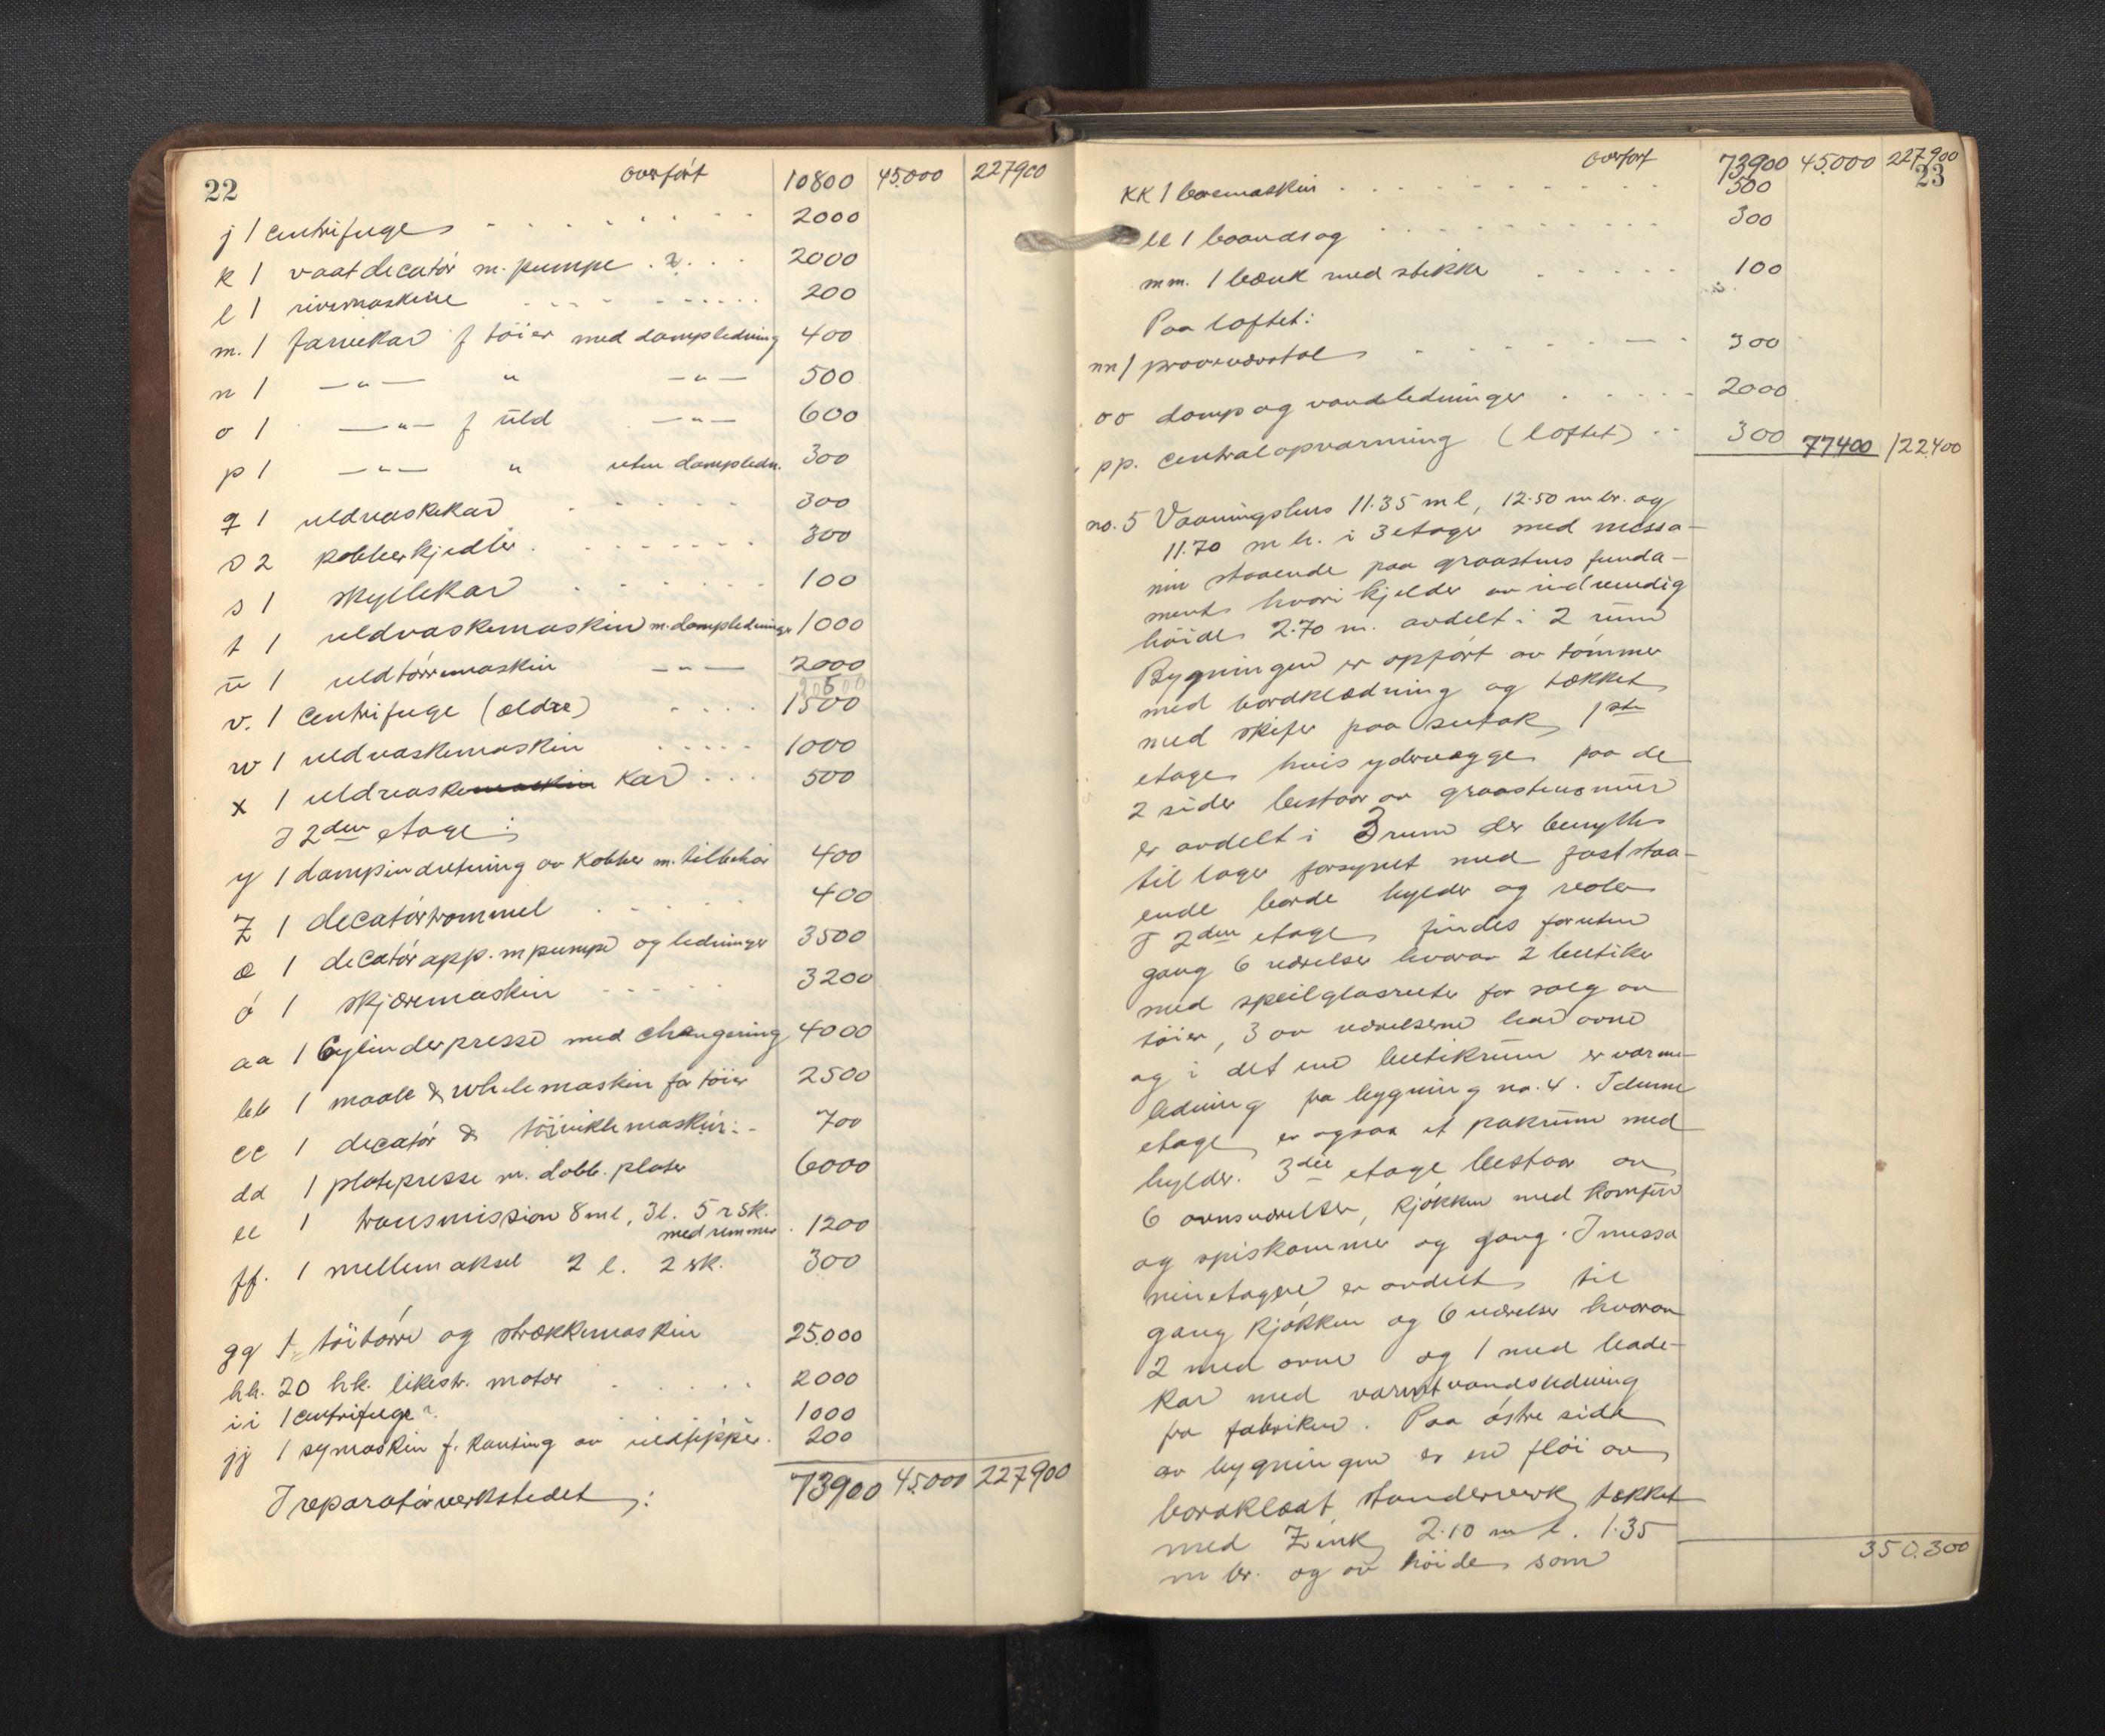 22
overført 10800 45.000 227900
j 1 centrifuge 2000
k 1 vaatdecatør m. pumpe . 2. 2000
l 1 rivemaskine 200
m. 1 farvekar f tøier med dampledning 400
n 1 —"— " —"— 500
o 1 —"— f uld —"— 600
p 1 —"— " uten dampledn. 300
q 1 uldvaskekar 300
r 2 kobberkjedler 300
s 1 skyllekar 100
t 1 uldvaskemaskin m. dampledninger 1000
u 1 uldtørremaskin —"— 2000
v. 1 centrifuge (ældre) 1500
w 1 uldvaskemaskin 1000
x 1 uldvaskemaskin kar 500
I 2den etage:
y 1 dampindretning av kobber m. tilbehør 400
z 1 decatørtrommel 400
æ 1 decatørapp. m pumpe og ledninger 3500
ø 1 skjæremaskin 3200
aa 1 Cylinderpresse med changering 4000
bb 1 maale & rullemaskin for tøier 2500
cc 1 decatør & tøivikle maskin 700
dd 1 platepresse m. dobb. plater 6000
ee 1 transmission 8 m l, 3 l. 5 r sk.
med remmer 1200
ff. 1 mellemaksel 2 l. 2 sk. 300
gg 1 tøitørre og strækkemaskin 25.000
hh. 20 hk. likestr. motor 2000
ii 1 centrifuge 1000
jj 1 symaskin f. kanting av uldtepper. 200
73900 45.000 227900
I reparatørverkstedet:
overført 73900 45.000 227.900
23
kk 1 boremaskin 500
ll 1 baandsag 300
mm. 1 bænk med stikke 100
Paa loftet:
nn 1 prøvevævstol 300
oo damp og vandledninger 2000
pp. centralopvarming (loftet) 300 77400 122400
no. 5 Vaaningshus 11.35 m l, 12.50 m br. og
11.70 m h. i 3 etager med messa-
nin staaende paa graastens funda-
ment hvori kjelder av indvendig
høide 2.70 m. avdelt i 2 rum
Bygningen er opført av tømmer
med bordklædning og tækket
med skifer paa sutak, 1ste
etage hvis ydervægge paa de
2 sider bestaar av graastensmur
er avdelt i 3 rum der benyttes
til lager forsynet med faststaa-
ende borde hylder og reoler
I 2den etage findes foruten
gang 6 værelser hvorav 2 butiker
med speilglasruter for salg av
tøier, 3 av værelserne har ovne
og i det ene butikrum er varme-
ledning fra bygning no. 4. I denne
etage er ogsaa et pakrum med
hylder. 3die etage bestaar av
6 ovnsværelser, kjøkken med komfur
og spiskammer og gang. I messa
ninetagen er avdelt til
gang kjøkken og 6 værelser hvorav
2 med ovne og 1 med bade-
kar med varmtvandsledning
fra fabriken. Paa østre side
av bygningen er en fløi av
bordklædt standerverk tækket
med Zink 2.10 m l. 1.35
m br. og av høide som
350.300